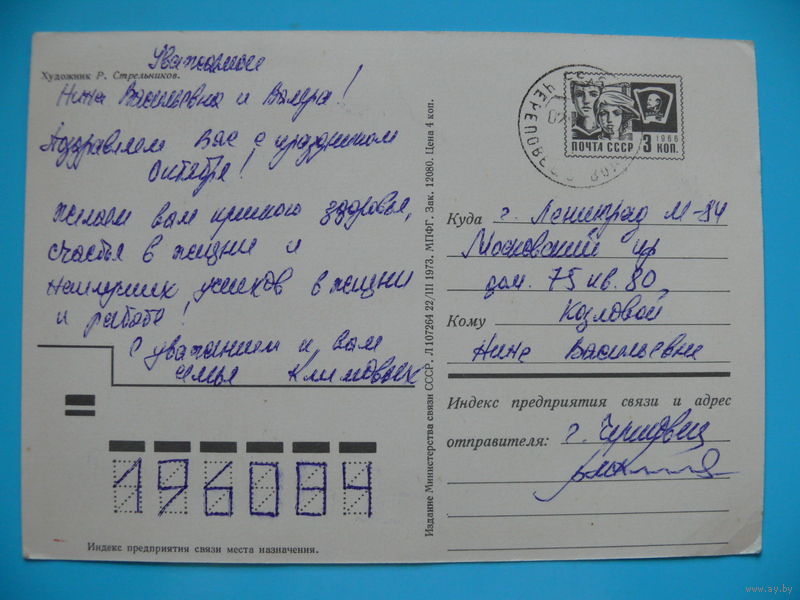 Художник Р. Стрельников.
Уважаемые
Нина Васильевна и Валера!
Поздравляем Вас с праздником
Октября!
желаем вам крепкого здоровья,
счастья в жизни и
наилучших успехов в жизни
и работе!
С уважением к вам
семья Климовых
196084
Индекс предприятия связи места назначения.
Издание Министерства связи СССР. Л 107264 22/III 1973. МПФГ. Зак. 12080. Цена 4 коп.
ЧЕРЕПОВЕЦ
ПОЧТА СССР 3 КОП.
1966
Куда г. Ленинград М-84
Московский пр
дом. 75 кв. 80,
Кому Козловой
Нине Васильевне
Индекс предприятия связи и адрес
отправителя: г. Череповец
www.ay.by